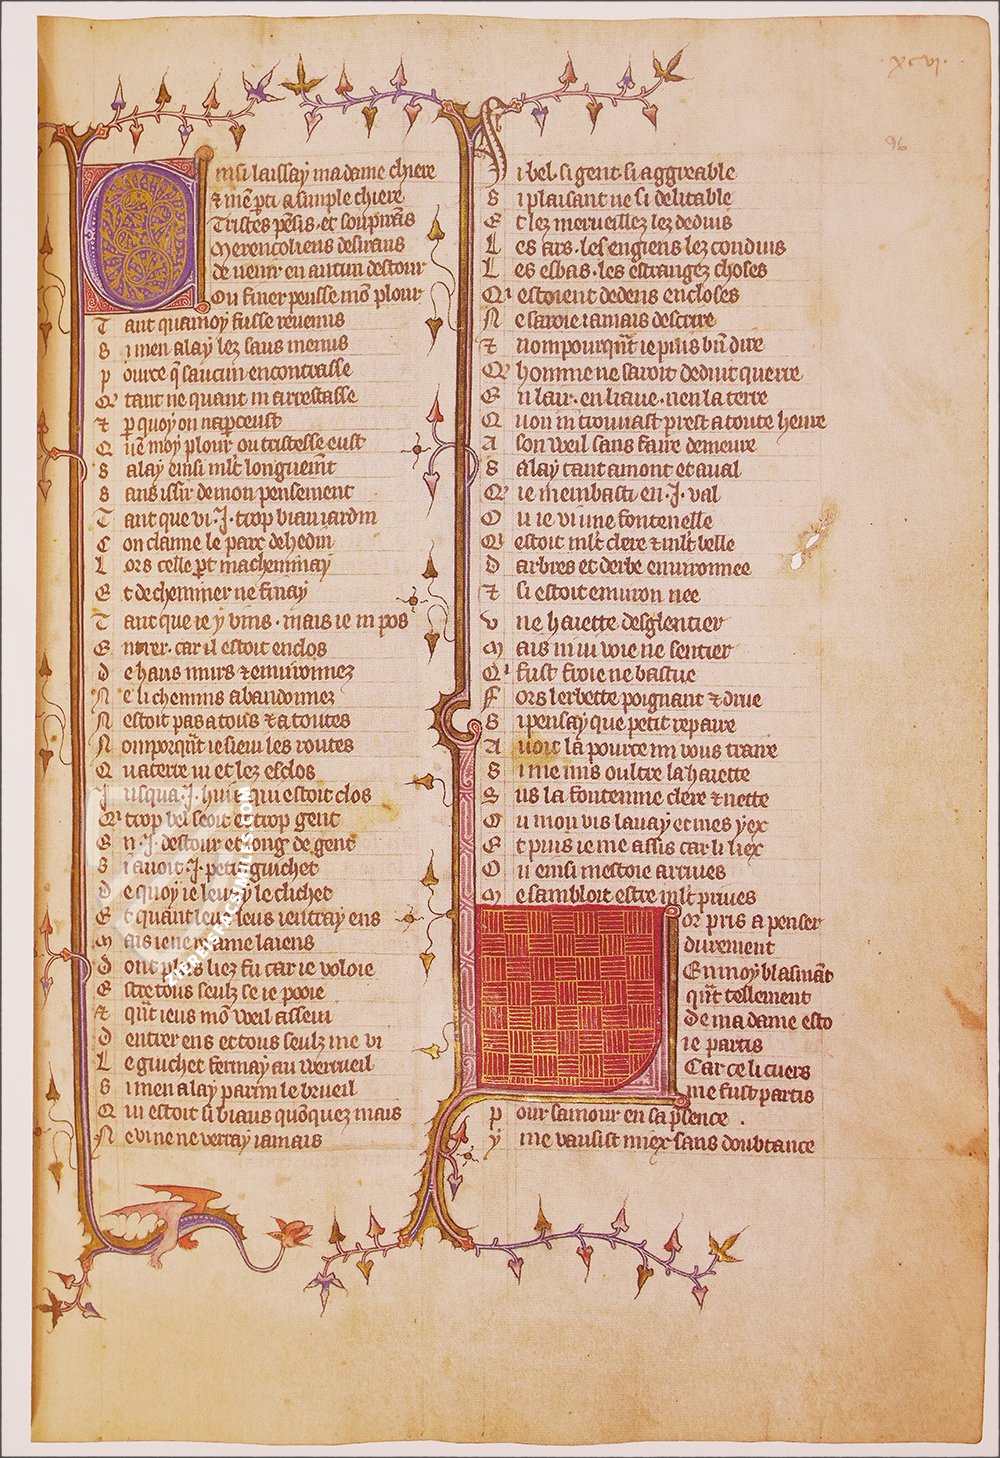 .xcvi.
96
Einsi laissay ma dame chiere
⁊ mẽ p̃ti a simple chiere
Tristes pẽsis et souspirãs
Merencoliens desirans
de venir en aucun destour
Ou finer peusse mõ plour
Tant quamoy fusse revenus
Si men alay lez saus menus
pource q̃ saucun encontrasse
Qͥ tant ne quant m arrestasse
⁊ p̃quoy on nap̃ceust
Quẽ moy plour ou tristesse eust
Salay einsi mlt̃ longuemt̃
Sans issir de mon pensement
Tant que vi .J. trop biau jardin
Con claime le parc de hedin
Lors celle p̃t macheminay
Et de cheminer ne finay
Tant que ie y vins. mais ie m pos
Entrer. car il estoit enclos
de haus murs ⁊ environnez
Ne li chemins abandonnez
Nestoit pas a tous ⁊ a toutes
Nomporq̃nt ie sievi les routes
Qua terre vi et lez esclos
Jusqua .J. huis qui estoit clos
Qͥ trop bel seoit et trop gent
En .J. destour et long de gent
Si avoit .J. petit guichet
De quoy ie levay le clichet
Et quant leu leus ientray ens
Mais ie ne vi ame laiens
dont plus liez fu car ie voloie
Estre tous seulz se ie pooie
⁊ q̃nt ieus mõ vueil assevi
dentrer ens et tous seulz me vi
Le guichet fermay au verrueil
Si men alay parmi le brueil
Qui estoit si biaus quõquez mais
Ne vi ne ne verray iamais
Si bel si gent si aggreable
Si plaisant ne si delitable
Et lez merveillez lez deduis
Les ars. les engiens lez conduis
Les esbas. les estrangez choses
Qͥ estoient dedens encloses
Ne saroie iamais descrire
⁊ nompourqñt ie puis bñ dire
Qͥ homme ne saroit deduit querre
En lair. en liaue. nen la terre
Quon ni trouvast prest a toute heure
A son vueil sans faire demeure
Salay tant amont et aval
Qͥ ie membasti en .J. val
Ou ie vi une fontenelle
Qͥ estoit mlt̃ clere ⁊ mlt̃ belle
Darbres et derbe environnee
⁊ si estoit environ nee
Vne haiette desglentier
Mais ni vi voie ne sentier
Qͥ fust froie ne bastue
Fors lerbette poignant ⁊ drue
Si pensay que petit repaire
Avoit la pource mi vous traire
Si me mis oultre la haiette
Sus la fontenine clere ⁊ nette
Ou mon vis lavay et mes yex
Et puis ie me assis car li liex
Ou einsi mestoie arrives
Me sambloit estre mlt̃ prives
Lor pris a penser
durement
En moy blasmãt
qñt tellement
de ma dame esto
ie partis
Car ce li cuers
me fust partis
pour samour en sa p̃sence .
y me vausist miex sans doubtance